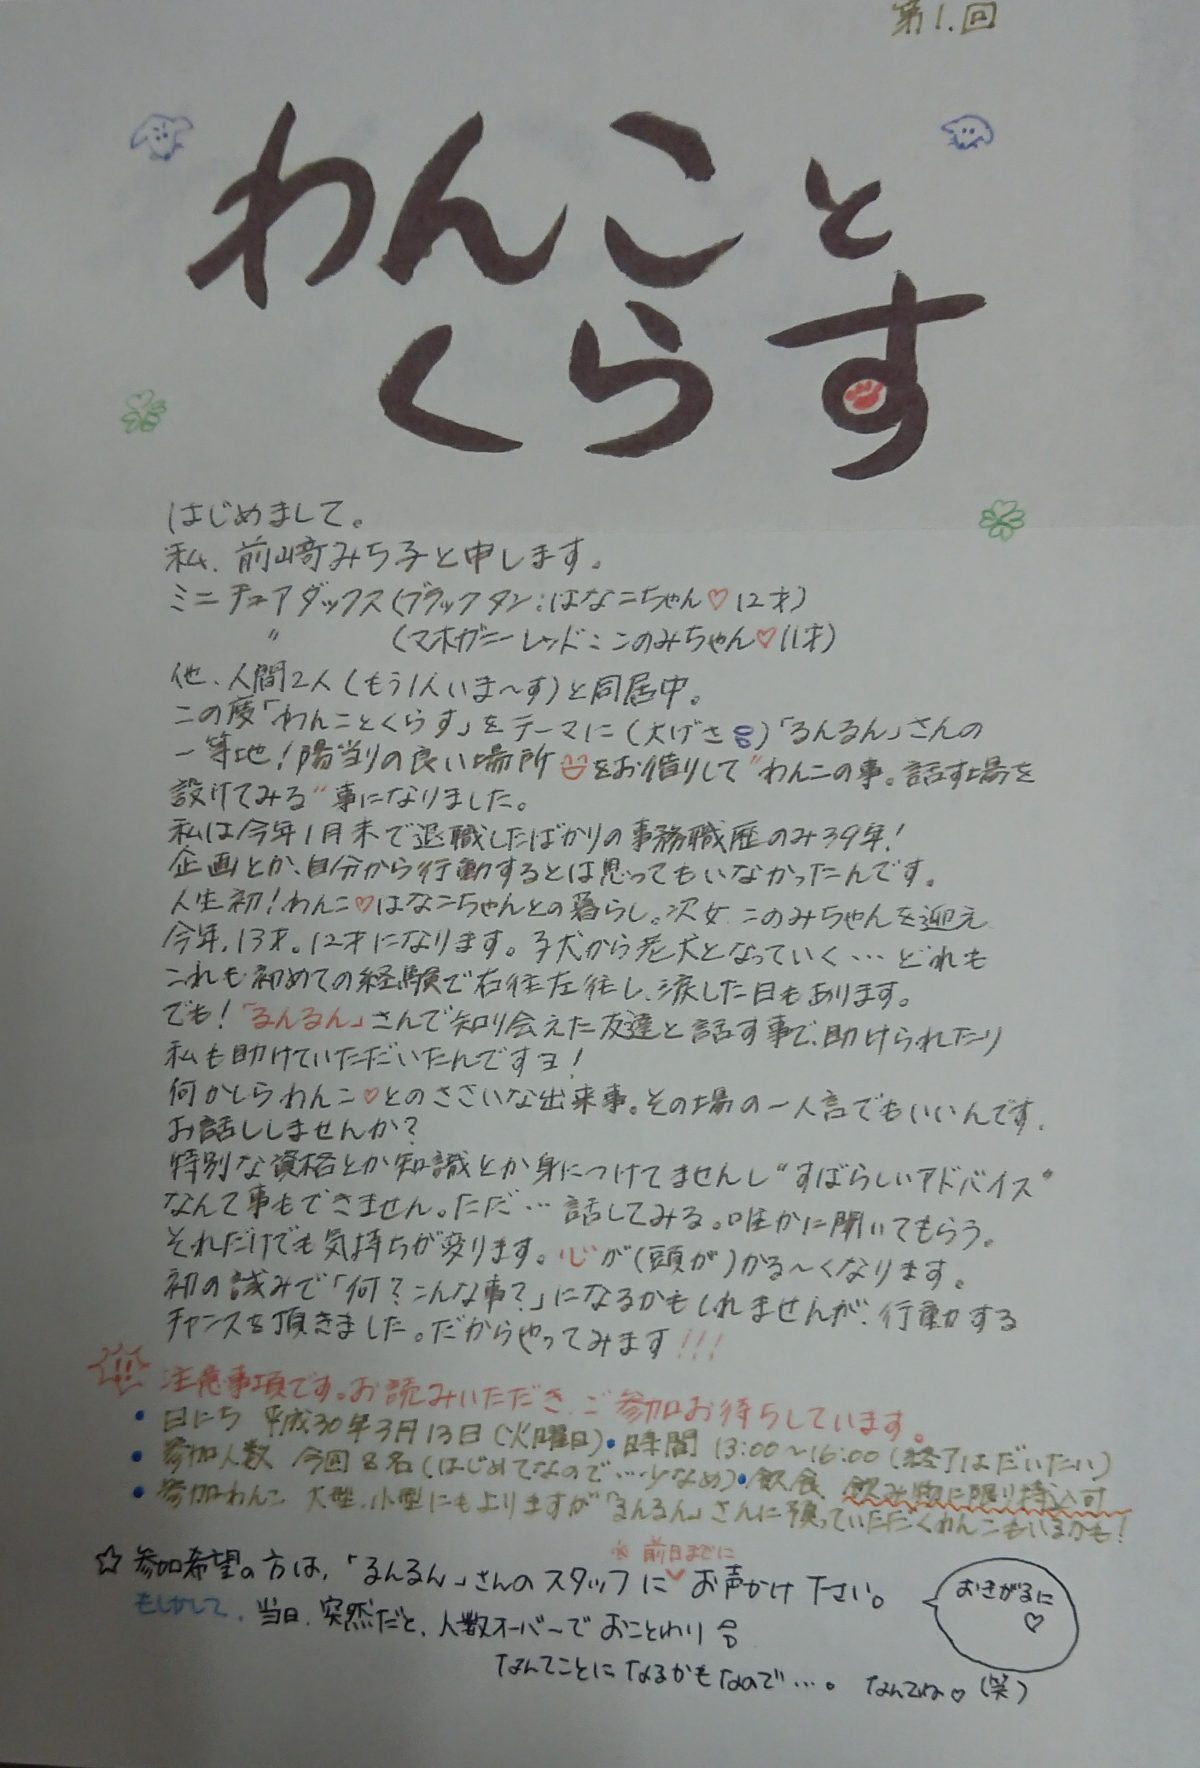 第1.回
わんこと
くらす
はじめまして。
私、前﨑みち子と申します。
ミニチュアダックス(ブラックタン:はなこちゃん♡12才)
〃 (マホガニーレッド:このみちゃん♡11才)
他、人間2人(もう1人いま〜す)と同居中。
この度「わんことくらす」をテーマに(大げさ)「るんるん」さんの
一等地!陽当りの良い場所をお借りして"わんこの事。話す場を
設けてみる"事になりました。
私は今年1月末で退職したばかりの事務職歴のみ39年!
企画とか、自分から行動するとは思ってもいなかったんです。
人生初!わんこ♡はなこちゃんとの暮らし。次女.このみちゃんを迎え
今年、13才。12才になります。子犬から老犬となっていく…どれも
これも初めての経験で右往左往し、涙した日もあります。
でも!「るんるん」さんで知り会えた友達と話す事で、助けられたり
私も助けていただいたんですヨ!
何かしらわんこ♡とのささいな出来事。その場の一人言でもいいんです.
お話ししませんか?
特別な資格とか知識とか身につけてませんし"すばらしいアドバイス"
なんて事もできません。ただ…話してみる。唯かに聞いてもらう。
それだけでも気持ちが変ります。心が(頭が)かる〜くなります。
初の試みで「何?こんな事?」になるかもしれませんが、行動する
チャンスを頂きました。だからやってみます!!!
注意事項です。お読みいただき、ご参加お待ちしています。
• 日にち 平成30年3月13日(火曜日)•時間 13:00〜16:00(終了はだいたい)
• 参加人数 今回8名(はじめてなので…少なめ)•飲食 飲み物に限り持込可
• 参加わんこ 大型、小型にもよりますが「るんるん」さんに預っていただくわんこもいるかも!
* 前日までに
☆ 参加希望の方は、「るんるん」さんのスタッフにお声かけ下さい。
もしかして、当日、突然だと、人数オーバーでおことわり
なんてことになるかもなので…。 なんてね♡(笑)
おきがるに
♡